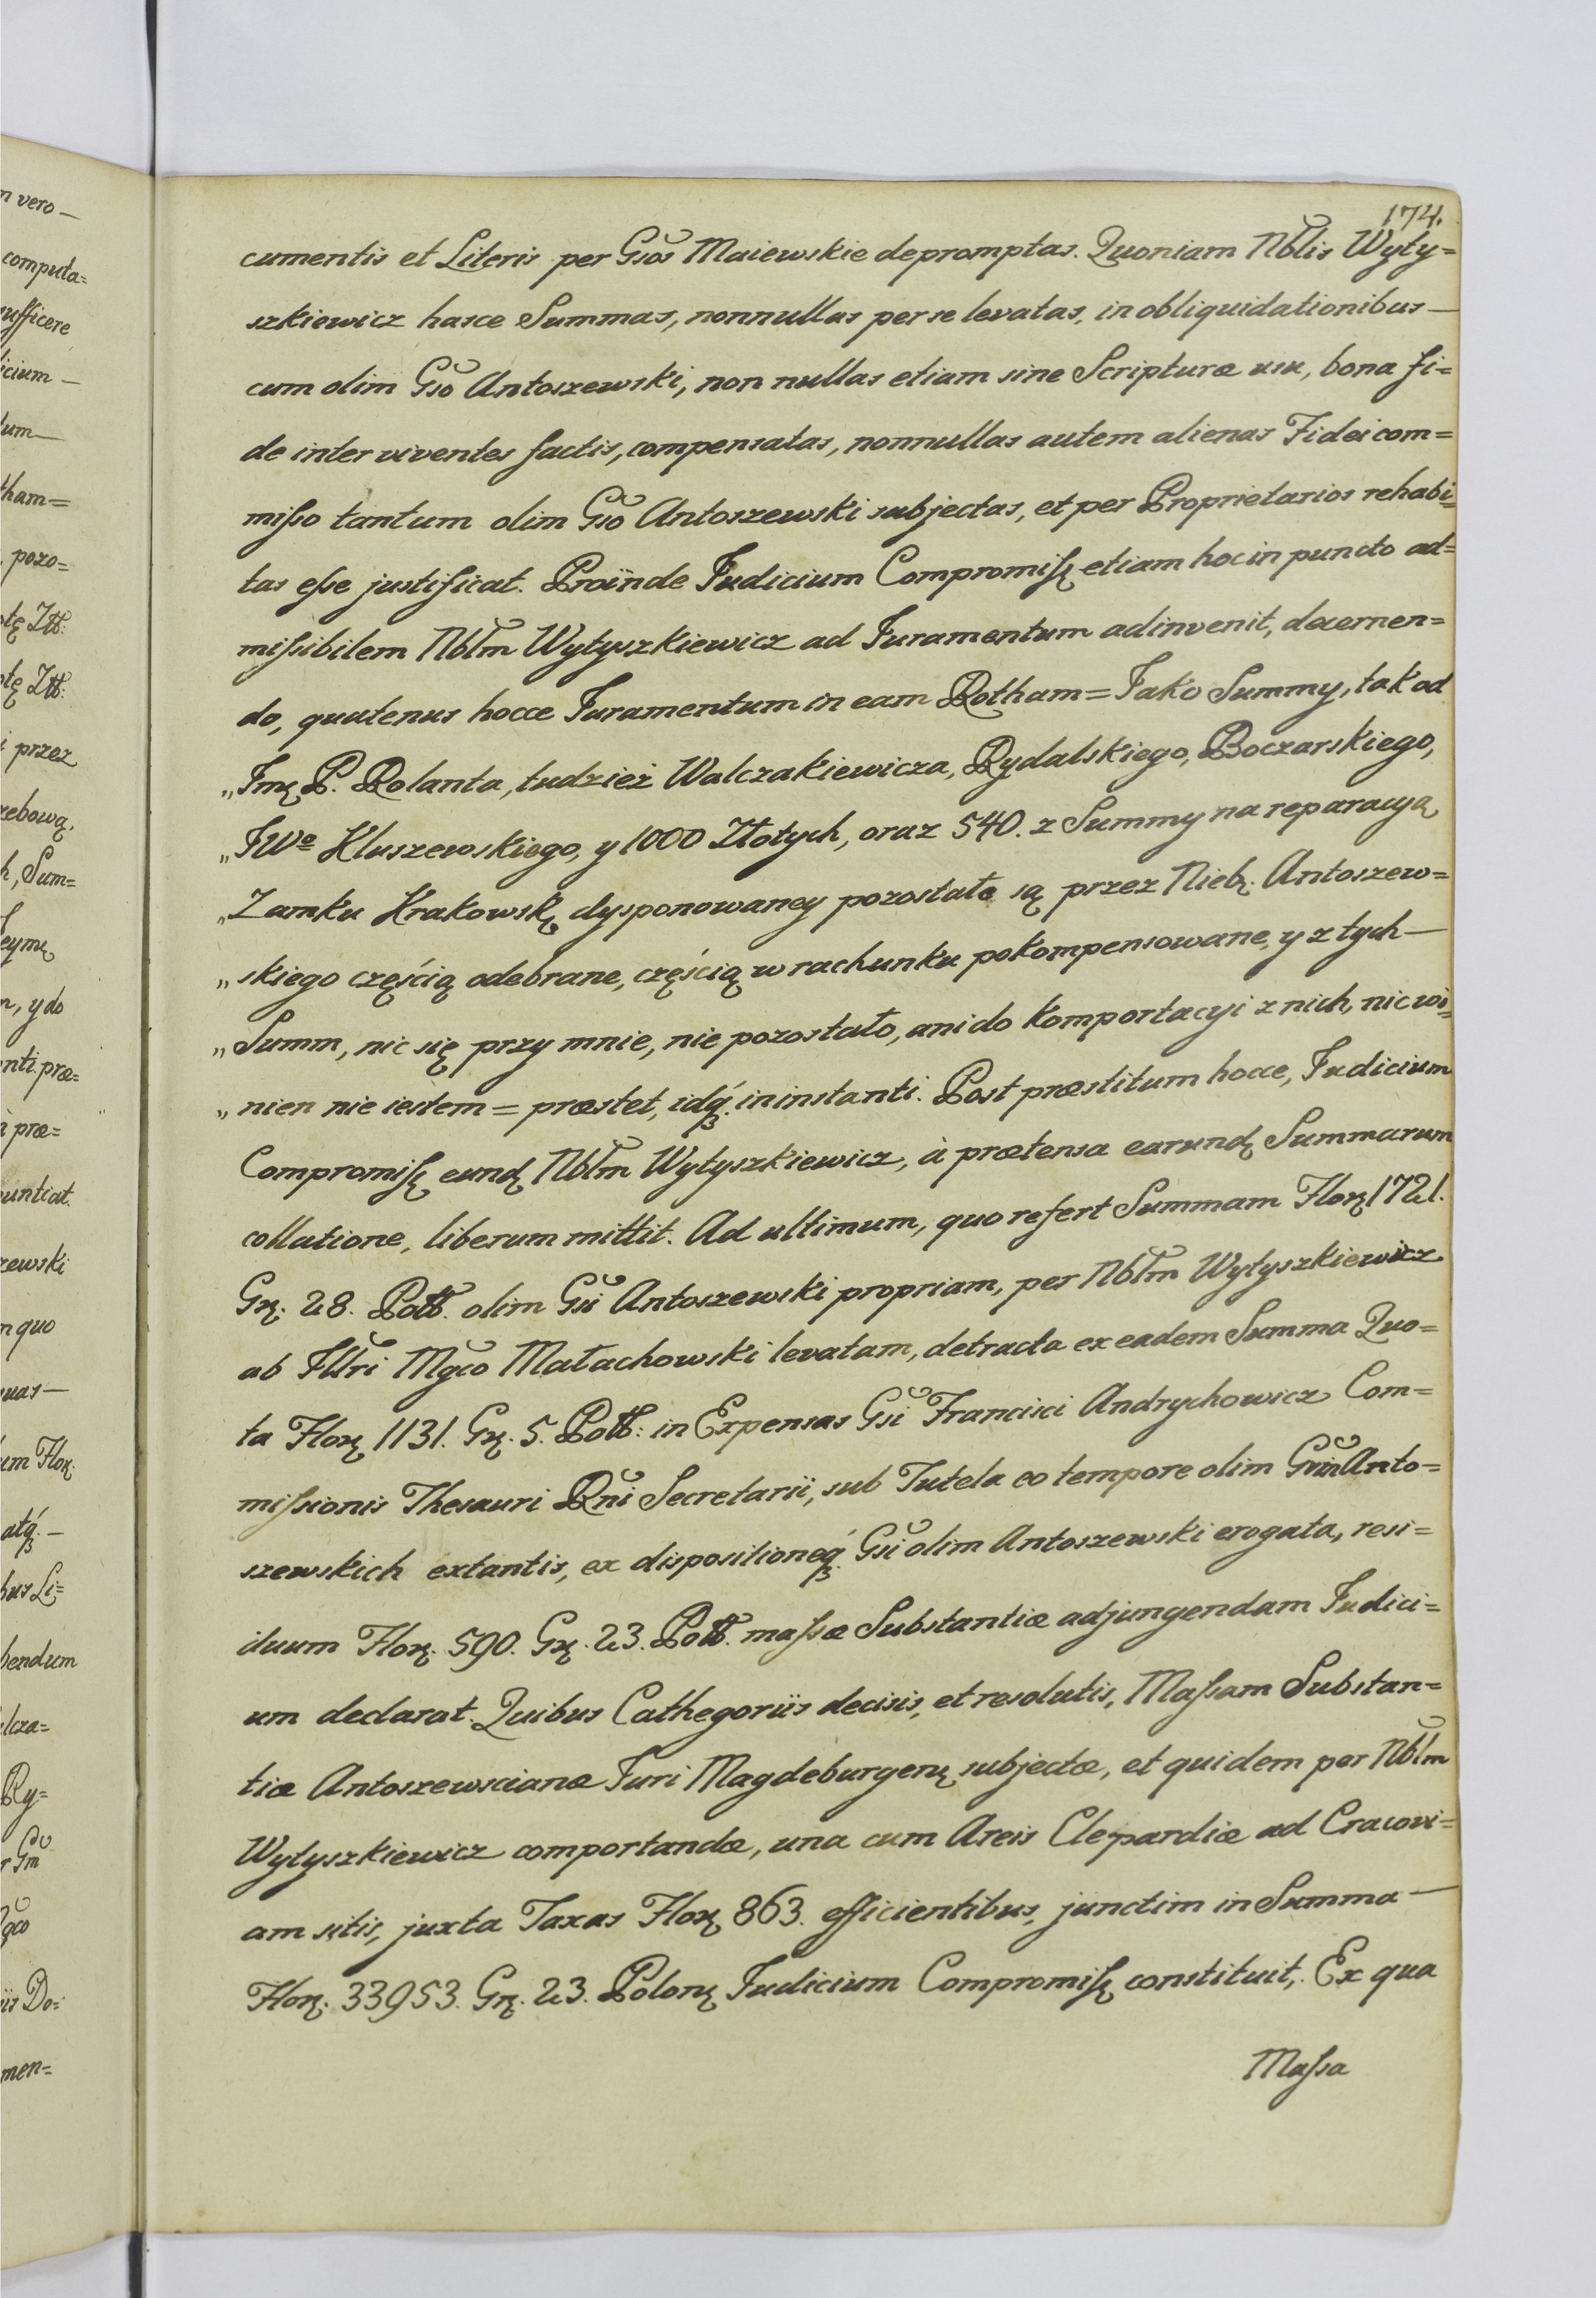 n vero —
computa=
sufficere
icium —
lum —
tham=
pozo=
tę Ztł:
tę Ztł:
i przez
rzebową,
h, Sum=
eymę
n, y do
enti præ=
i præ=
untiat.
zewski
n quo
uas —
um Flor.
atq́ꝫ. —
bus Li=
bendum
lcza=
Ry=
r Gm̃
gco
iis Do=
men=
174.
cumentis et Literis per Gsõs Maiewskie depromptas. Quoniam Nbl̃is Wyty=
szkiewicz hasce Summas, nonnullas per se levatas, in obliquidationibus —
cum olim Gsõ Antoszewski, non nullas etiam sine Scripturæ usu, bona fi=
de inter viventes factis, compensatas, nonnullas autem alienas Fideicom=
miſso tantum olim Gsõ Antoszewski subjectas, et per Proprietarios rehabi=
tas eſse justificat. Proinde Judicium Compromiſsę etiam hoc in puncto ad=
miſsibilem Nbl̃m Wytyszkiewicz ad Juramentum adinvenit, decernen=
do, quatenus hocce Juramentum in eam Rotham = Jako Summy, tak od
„Jmę P. Rolanta, tudzież Walczakiewicza, Rydalskiego, Boczarskiego,
„JWº Kluszewskiego, y 1000 Złotych, oraz 540. z Summy na reparacyą
„Zamku Krakowskę dysponowaney pozostałe są przez Niebę. Antoszew=
„skiego częścią odebrane, częścią w rachunku pokompensowane, y z tych —
„Summ, nic się przy mnie, nie pozostało, ani do komportacyi z nich, nic wi=
„nien nie iestem = præstet, idq́ꝫ. in instanti. Post præstitum hocce, Judicium
Compromiſsę eundę Nbl̃m Wytyszkiewicz, à prætensa earundę Summarum
collatione, liberum mittit. Ad ultimum, quo refert Summam Florę 1721.
Grę. 28. Poltł. olim Gsĩ Antoszewski propriam, per Nbl̃m Wytyszkiewicz
ab Jllr̃i Mgc̃o Małachowski levatam, detracta ex eadem Summa Quo=
ta Florę 1131. Grę. 5. Poltł: in Expensas Gsĩ Francisci Andrychowicz Com=
miſsionis Thesauri Rñi Secretarii, sub Tutela eo tempore olim Gsrũm Anto=
szewskich extantis, ex dispositioneq́ꝫ. Gsĩ olim Antoszewski erogata, resi=
duum Florę. 590. Grę. 23. Poltł. maſsæ Substantiæ adjungendam Judici=
um declarat. Quibus Cathegoriis decisis, et resolutis, Maſsam Substan=
tiæ Antoszewscianæ Juri Magdeburgenę subjectæ, et quidem per Nbl̃m
Wytyszkiewicz comportandæ, una cum Areis Clepardiæ ad Cracovi=
am sitis, juxta Taxas Florę 863. efficientibus, junctim in Summa —
Florę. 33953. Grę. 23. Polonę Judicium Compromiſsę constituit,. Ex qua
Maſsa